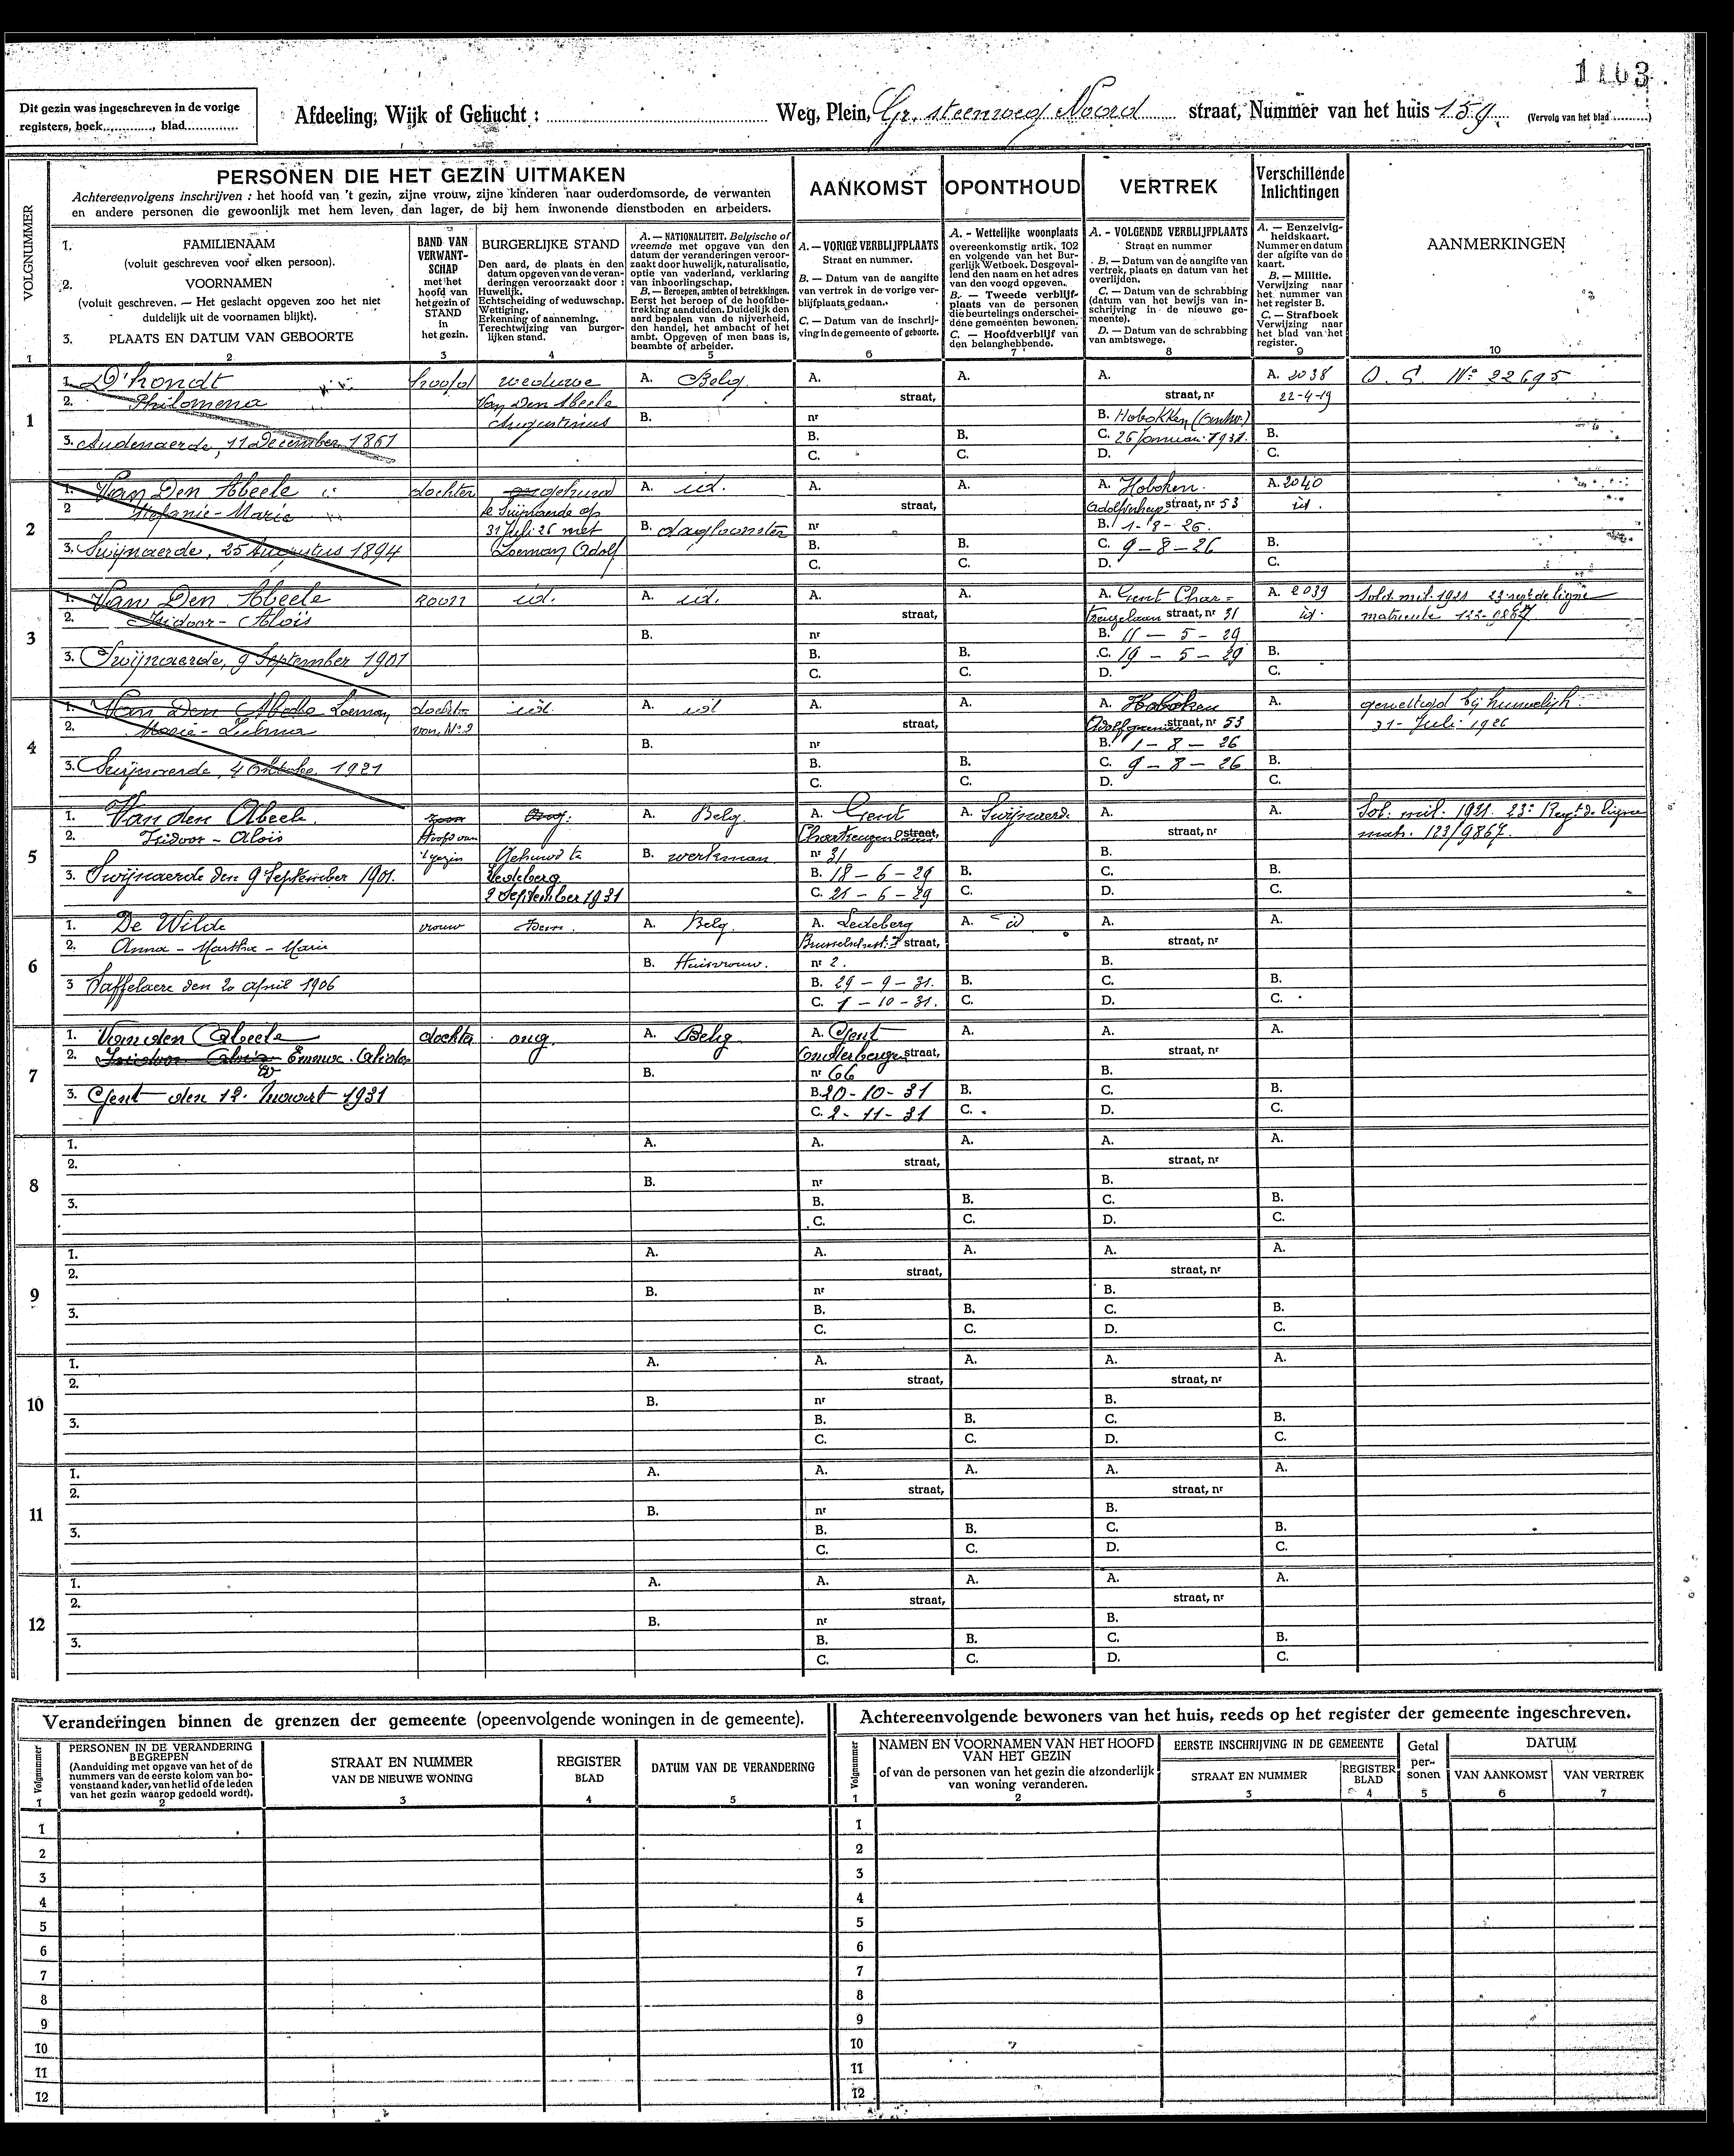 1163
Dit gezin was ingeschreven in de vorige
registers, boek............, blad..............
Afdeeling, Wijk of Gehucht :
Weg, Plein, Gr. steenweg Noord straat, Nummer van het huis 159. (Vervolg van het blad ..........)
VOLGNUMMER
PERSONEN DIE HET GEZIN UITMAKEN
Achtereenvolgens inschrijven : het hoofd van 't gezin, zijne vrouw, zijne kinderen naar ouderdomsorde, de verwanten
en andere personen die gewoonlijk met hem leven, dan lager, de bij hem inwonende dienstboden en arbeiders.
AANKOMST
OPONTHOUD
VERTREK
Verschillende
Inlichtingen
AANMERKINGEN
1. FAMILIENAAM
(voluit geschreven voor elken persoon).
2. VOORNAMEN
(voluit geschreven. — Het geslacht opgeven zoo het niet
duidelijk uit de voornamen blijkt).
3. PLAATS EN DATUM VAN GEBOORTE
BAND VAN
VERWANT-
SCHAP
met het
hoofd van
het gezin of
STAND
in
het gezin.
BURGERLIJKE STAND
Den aard, de plaats en den
datum opgeven van de veran-
deringen veroorzaakt door :
Huwelijk.
Echtscheiding of weduwschap.
Wettiging.
Erkenning of aanneming.
Terechtwijzing van burger-
lijken stand.
A. — NATIONALITEIT. Belgische of
vreemde met opgave van den
datum der veranderingen veroor-
zaakt door huwelijk, naturalisatie,
optie van vaderland, verklaring
van inboorlingschap.
B. — Beroepen, ambten of betrekkingen.
Eerst het beroep of de hoofdbe-
trekking aanduiden. Duidelijk den
aard bepalen van de nijverheid,
den handel, het ambacht of het
ambt. Opgeven of men baas is,
beambte of arbeider.
A. — VORIGE VERBLIJFPLAATS
Straat en nummer.
B. — Datum van de aangifte
van vertrek in de vorige ver-
blijfplaats gedaan.
C. — Datum van de inschrij-
ving in de gemeente of geboorte.
A. - Wettelijke woonplaats
overeenkomstig artik. 102
en volgende van het Bur-
gerlijk Wetboek. Desgeval-
lend den naam en het adres
van den voogd opgeven.
B. — Tweede verblijf-
plaats van de personen
die beurtelings onderschei-
dene gemeenten bewonen.
C. — Hoofdverblijf van
den belanghebbende.
A. - VOLGENDE VERBLIJFPLAATS
Straat en nummer
B. — Datum van de aangifte van
vertrek, plaats en datum van het
overlijden.
C. — Datum van de schrabbing
(datum van het bewijs van in-
schrijving in de nieuwe ge-
meente).
D. — Datum van de schrabbing
van ambtswege.
A. — Eenzelvig-
heidskaart.
Nummer en datum
der afgifte van de
kaart.
B. — Militie.
Verwijzing naar
het nummer van
het register B.
C. — Strafboek
Verwijzing naar
het blad van het
register.
1 2 3 4 5 6 7 8 9 10
1
1. D'hondt hoofd weduwe A. Belg. A. A. A. A. 2038 O. G. No 22695
2. Philomena Van Den Abeele straat, straat, nr 22-4-19
Augustinus B. nr B. Hobokken (Antw.)
3. Audenaerde, 11 December 1861 B. B. C. 26 Januari 1931. B.
C. C. D. C.
2
1. Van Den Abeele dochter ongehuwd A. id. A. A. A. Hoboken. A. 2040
2 Stefanie-Marie te Swijnaerde op straat, straat, nr 53 id.
31 Juli 26 met B. dagloonster nr B. 1-8-26.
3. Swijnaerde, 25 Augustus 1894 Loeman Adolf B. B. C. 9-8-26 B.
C. C. D. C.
3
1. Van Den Abeele zoon id. A. id. A. A. A. Gent Char= A. 2039 Sold. mil. 1921 23e regt de ligne
2. Isidoor-Aloïs straat, treuzelaan straat, nr 31 id. matricule 123-9867
B. nr B. 11-5-29
3. Swijnaerde, 9 September 1901 B. B. C. 19-5-29 B.
C. C. D. C.
4
1. Van Den Abeele Loeman dochter id. A. id A. A. A. Hoboken A. gewettigd bij huwelijk
2. Marie- van No 2 straat, straat, nr 53 31-Juli-1926
B. nr B. 1-8-26
3. Swijnaerde, 4 Oktober 1921 B. B. C. 9-8-26 B.
C. C. D. C.
5
1. Van den Abeele. zoon Ong. A. Belg. A. Gent A. Swijnaerd. A. A. Sol. mil. 1921. 23e Regt. de ligne
2. Isidoor-Aloïs Hoofd van Chartreuzenlaan straat, straat, nr mat. 123/9867.
't gezin Gehuwd te B. werkman nr 31 B.
3. Swijnaerde den 9 September 1901. Ledeberg B. 18-6-29 B. C. B.
2 September 1931 C. 21-6-29 C. D. C.
6
1. De Wilde vrouw Idem. A. Belg. A. Ledeberg A. id A. A.
2. Anna-Martha-Marie straat, straat, nr
B. Huisvrouw. nr 2. B.
3 Saffelaere den 20 april 1906 B. 29-9-31. B. C. B.
C. 1-10-31. C. D. C.
7
1. Van den Abeele dochter ong. A. Belg A. Gent A. A. A.
2. Isidoor Alois Emma. straat, straat, nr
B. nr 66 B.
3. Gent den 12. Maart 1931 B. 20-10-31 B. C. B.
C. 2-11-31 C. D. C.
8
1. A. A. A. A. A.
2. straat, straat, nr
B. nr B.
3. B. B. C. B.
C. C. D. C.
9
1. A. A. A. A. A.
2. straat, straat, nr
B. nr B.
3. B. B. C. B.
C. C. D. C.
10
1. A. A. A. A. A.
2. straat, straat, nr
B. nr B.
3. B. B. C. B.
C. C. D. C.
11
1. A. A. A. A. A.
2. straat, straat, nr
B. nr B.
3. B. B. C. B.
C. C. D. C.
12
1. A. A. A. A. A.
2. straat, straat, nr
B. nr B.
3. B. B. C. B.
C. C. D. C.
Veranderingen binnen de grenzen der gemeente (opeenvolgende woningen in de gemeente).
Volgnummer
PERSONEN IN DE VERANDERING
BEGREPEN
(Aanduiding met opgave van het of de
nummers van de eerste kolom van bo-
venstaand kader, van het lid of de leden
van het gezin waarop gedoeld wordt).
STRAAT EN NUMMER
VAN DE NIEUWE WONING
REGISTER
BLAD
DATUM VAN DE VERANDERING
1 2 3 4 5
1
2
3
4
5
6
7
8
9
10
11
12
Achtereenvolgende bewoners van het huis, reeds op het register der gemeente ingeschreven.
Volgnummer
NAMEN EN VOORNAMEN VAN HET HOOFD
VAN HET GEZIN
of van de personen van het gezin die afzonderlijk
van woning veranderen.
EERSTE INSCHRIJVING IN DE GEMEENTE
STRAAT EN NUMMER
REGISTER
BLAD
Getal
per-
sonen
DATUM
VAN AANKOMST
VAN VERTREK
1 2 3 4 5 6 7
1
2
3
4
5
6
7
8
9
10
11
12